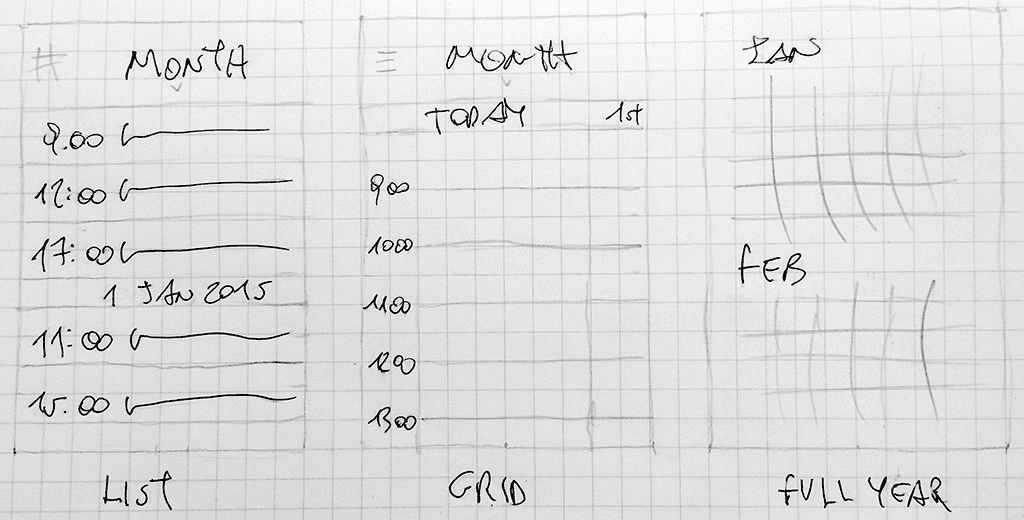 MONTH
9.00
12:00
17:00
1 JAN 2015
11:00
15.00
LIST
MONTH
TODAY 1st
900
1000
1100
1200
1300
GRID
JAN
FEB
FULL YEAR